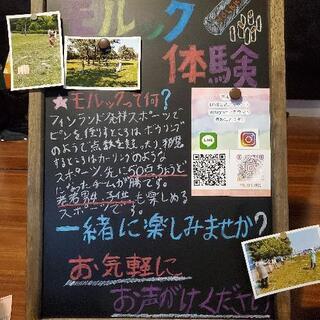 モルック
体験
★モルックって何?
フィンランド発祥スポーツで
ピンを倒すところはボウリング
のようで点数を競ったり邪魔
するところはカーリングのような
スポーツ。先に50点ちょうど
になったチームが勝ちです。
老若男女
も楽しめる
スポーツです。
一緒に楽しみませんか?
お気軽に
お声がけください
LINE